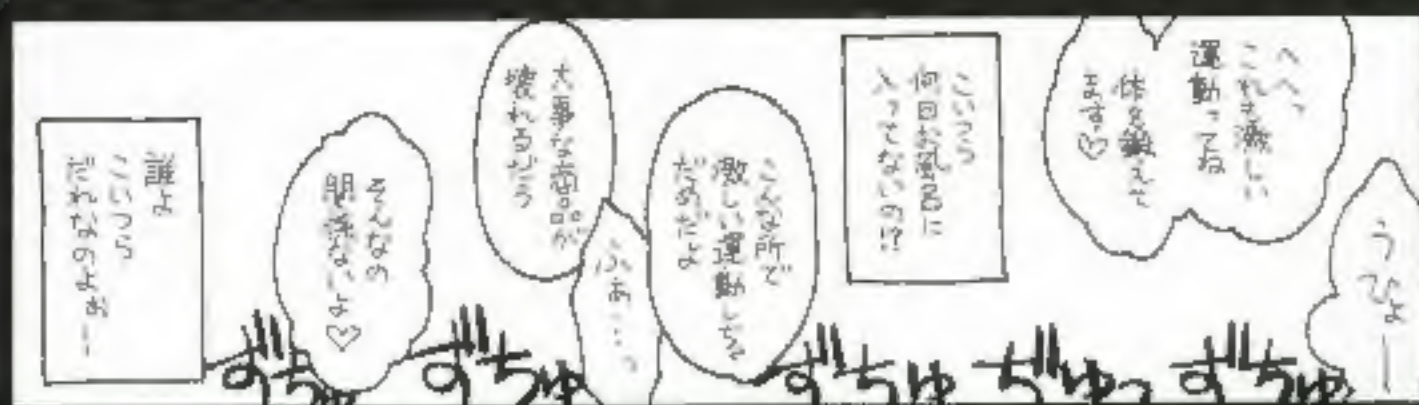 うひょー
へへっ
これも激しい
運動ってね
体を鍛えて
ます♡
こいつら
何日お風呂に
入ってないの!?
こんな所で
激しい運動しちゃ
だめだよ
ふぁ…っ
大事な商品が
壊れるだろ
そんなの
関係ないよ♡
誰よ
こいつら
だれなのよぉー
ずちゅ
ぢゅっ
ずちゅ
ずちゅ
ずちゅ